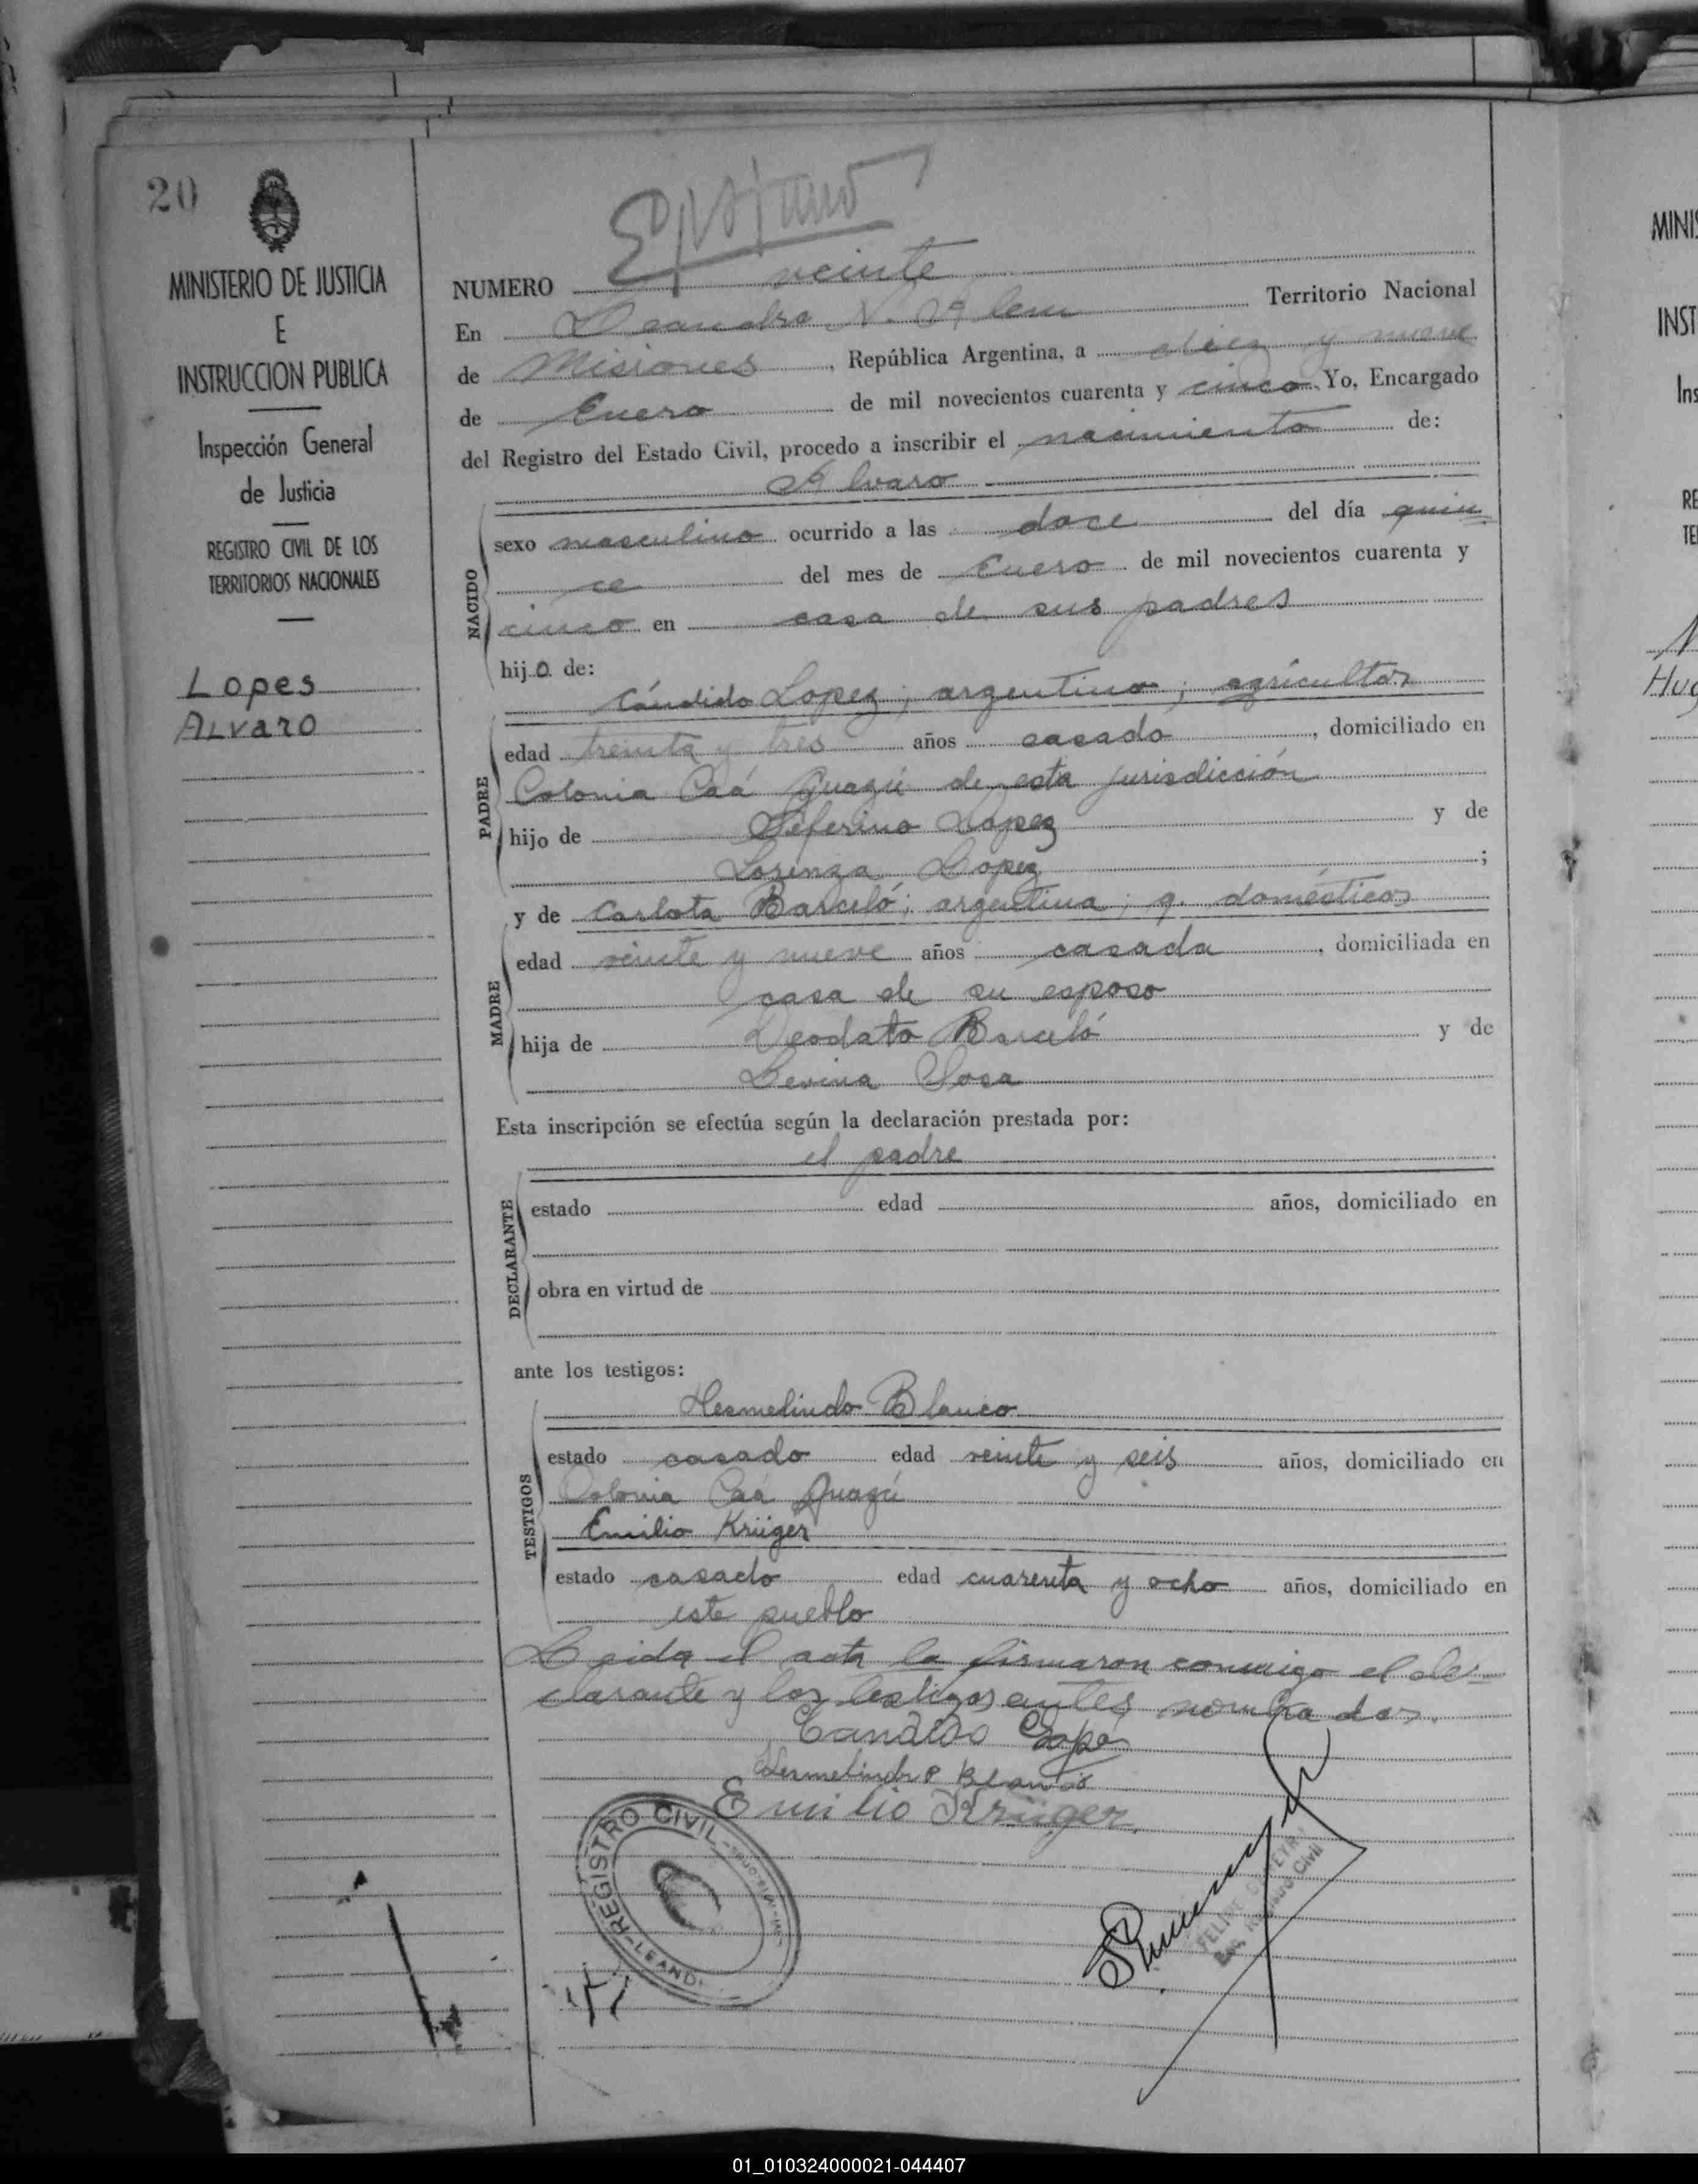 20
MINISTERIO DE JUSTICIA
E
INSTRUCCION PUBLICA
Inspección General
de Justicia
REGISTRO CIVIL DE LOS
TERRITORIOS NACIONALES
Lopes
ALvaro
NUMERO veinte
En Leandro N. Alem Territorio Nacional
de Misiones, República Argentina, a diez y nueve
de Enero de mil novecientos cuarenta y cinco Yo, Encargado
del Registro del Estado Civil, procedo a inscribir el nacimiento de:
Alvaro
NACIDO
sexo masculino ocurrido a las doce del día quin
ce del mes de Enero de mil novecientos cuarenta y
cinco en casa de sus padres
hijo de:
Cándido Lopez; argentino; agricultor
PADRE
edad treinta y tres años casado, domiciliado en
Colonia Caá Guazú de esta jurisdicción
hijo de Seferino Lopez y de
Lorenza Lopez;
y de Carlota Barceló; argentina; q. domésticos
MADRE
edad veinte y nueve años casada, domiciliada en
casa de su esposo
hija de Deodato Barceló y de
Levina Sosa
Esta inscripción se efectúa según la declaración prestada por:
el padre
DECLARANTE
estado edad años, domiciliado en
obra en virtud de
ante los testigos:
Hermelindo Blanco
TESTIGOS
estado casado edad veinte y seis años, domiciliado en
Colonia Caá Guazú
Emilio Krüger
estado casado edad cuarenta y ocho años, domiciliado en
este pueblo
Leida el acta la firmaron conmigo el de=
clarante y los testigos antes nombrados.
Candido Lope
Hermelindo Blanco
Emilio Krüger
REGISTRO CIVIL
LEAND
FELIPE
Enc. Registro Civil
MINIS
INST
Ins
RE
TE
Hug
01_010324000021-044407